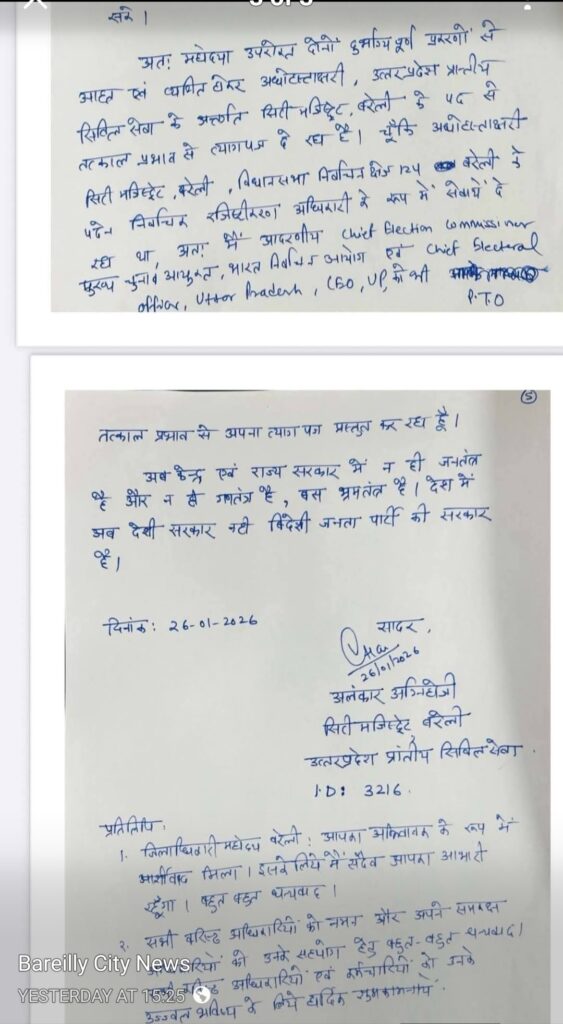 सके।
अतः महोदया उपरोक्त दोनों दुर्भाग्यपूर्ण प्रकरणों से
आहत एवं व्यथित होकर अधोहस्ताक्षरी, उत्तरप्रदेश प्रान्तीय
सिविल सेवा के अन्तर्गत सिटी मजिस्ट्रेट, बरेली के पद से
तत्काल प्रभाव से त्यागपत्र दे रहा है। चूँकि अधोहस्ताक्षरी
सिटी मजिस्ट्रेट, बरेली, विधानसभा निर्वाचन क्षेत्र 124 बरेली के
पदेन निर्वाचक रजिस्ट्रीकरण अधिकारी के रूप में सेवायें दे
रहा था, अतः मैं आदरणीय Chief Election Commissioner
मुख्य चुनाव आयुक्त, भारत निर्वाचन आयोग एवं Chief Electoral
officer, Uttar Pradesh, CEO, UP, को भी
P.T.O
5
तत्काल प्रभाव से अपना त्याग पत्र प्रस्तुत कर रहा हूँ।
अब केन्द्र एवं राज्य सरकार में न ही जनतंत्र
है और न ही गणतंत्र है, बस भ्रमतंत्र है। देश में
अब देशी सरकार नही विदेशी जनता पार्टी की सरकार
है।
दिनांक: 26-01-2026
सादर,
26/01/2026
अलंकार अग्निहोत्री
सिटी मजिस्ट्रेट बरेली
उत्तरप्रदेश प्रांतीय सिविल सेवा.
I.D: 3216.
प्रतिलिपि:
1. जिलाधिकारी महोदय बरेली: आपका अभिभावक के रूप में
आर्शीवाद मिला। इसके लिये मैं सदैव आपका आभारी
रहूँगा। बहुत बहुत धन्यवाद।
2. सभी वरिष्ठ अधिकारियों को नमन और अपने समकक्ष
अधिकारियों को उनके सहयोग हेतु बहुत-बहुत धन्यवाद।
अधिकारियों एवं कर्मचारियों को उनके
उज्ज्वल भविष्य के लिये हार्दिक शुभकामनायें.
Bareilly City News
YESTERDAY AT 15:25